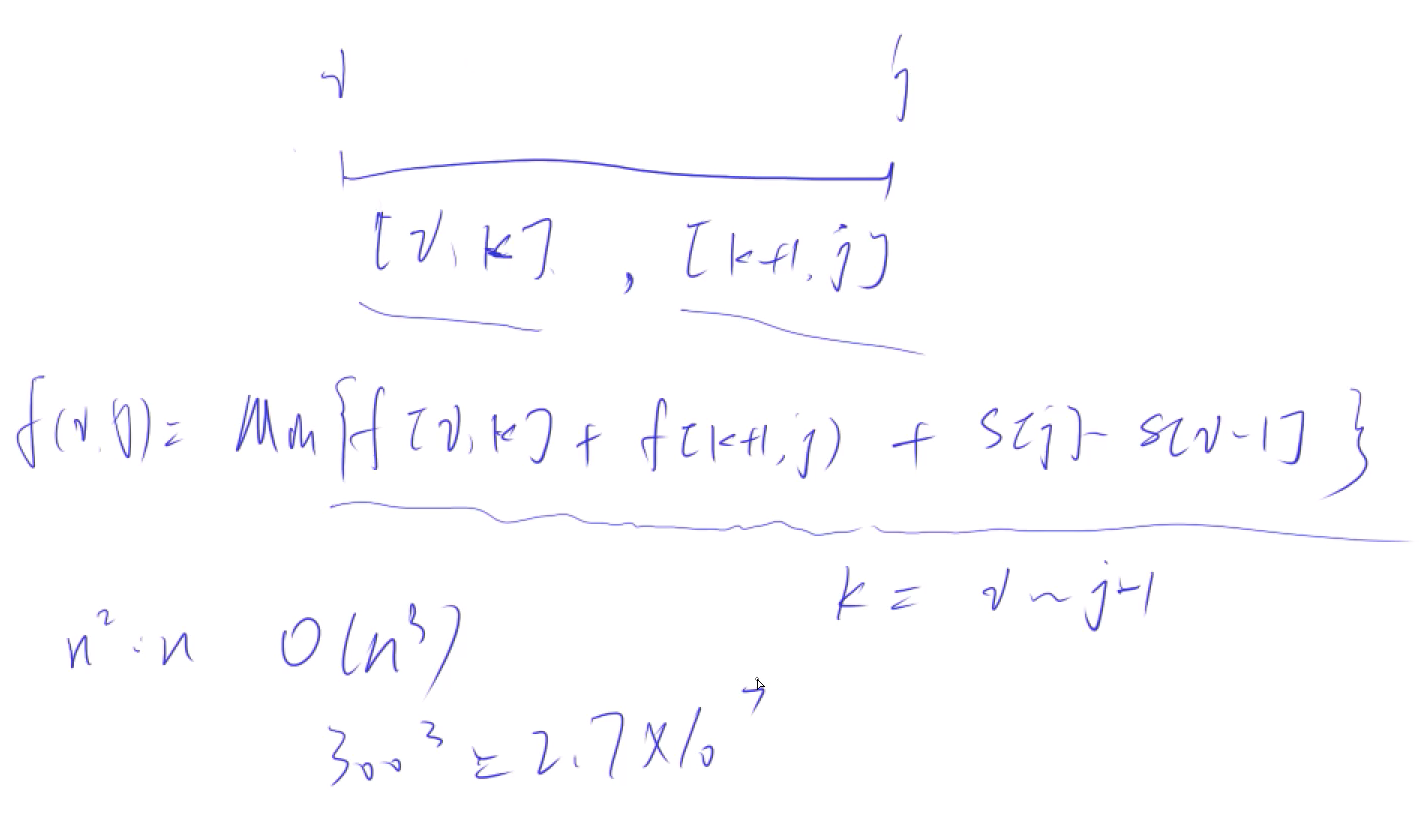 i j
[i, k] , [k+1, j]
f(i, j) = Min{f[i, k] + f[k+1, j) + S[j] - S[i-1]}
k = i ~ j-1
n² · n O(n³)
300³ = 2.7 × 10⁷